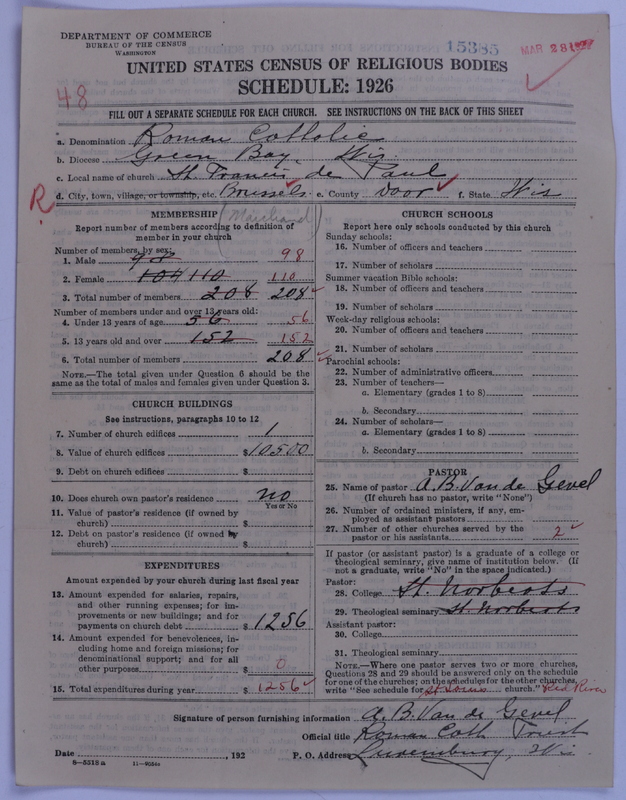 DEPARTMENT OF COMMERCE
BUREAU OF THE CENSUS
WASHINGTON
15385
MAR 28 1927
UNITED STATES CENSUS OF RELIGIOUS BODIES
SCHEDULE: 1926
48
FILL OUT A SEPARATE SCHEDULE FOR EACH CHURCH. SEE INSTRUCTIONS ON THE BACK OF THIS SHEET
a. Denomination Roman Catholic
b. Diocese Green Bay, Wis.
c. Local name of church St. Francis de Paul
R d. City, town, village, or township, etc. Brussels e. County Door f. State Wis
MEMBERSHIP (Marchand)
Report number of members according to definition of
member in your church
Number of members, by sex:
1. Male 98 98
2. Female 104 110 110
3. Total number of members 208 208
Number of members under and over 13 years old:
4. Under 13 years of age 56 56
5. 13 years old and over 152 152
6. Total number of members 208
NOTE.—The total given under Question 6 should be the
same as the total of males and females given under Question 3.
CHURCH BUILDINGS
See instructions, paragraphs 10 to 12
7. Number of church edifices 1
8. Value of church edifices $10500
9. Debt on church edifices $
10. Does church own pastor's residence no
Yes or No
11. Value of pastor's residence (if owned by
church) $
12. Debt on pastor's residence (if owned by
church) $
EXPENDITURES
Amount expended by your church during last fiscal year
13. Amount expended for salaries, repairs,
and other running expenses; for im-
provements or new buildings; and for
payments on church debt $1256
14. Amount expended for benevolences, in-
cluding home and foreign missions; for
denominational support; and for all
other purposes $ 0
15. Total expenditures during year $1256
CHURCH SCHOOLS
Report here only schools conducted by this church
Sunday schools:
16. Number of officers and teachers
17. Number of scholars
Summer vacation Bible schools:
18. Number of officers and teachers
19. Number of scholars
Week-day religious schools:
20. Number of officers and teachers
21. Number of scholars
Parochial schools:
22. Number of administrative officers
23. Number of teachers—
a. Elementary (grades 1 to 8)
b. Secondary
24. Number of scholars—
a. Elementary (grades 1 to 8)
b. Secondary
PASTOR
25. Name of pastor A. B. Van de Gevel
(If church has no pastor, write "None")
26. Number of ordained ministers, if any, em-
ployed as assistant pastors
27. Number of other churches served by the
pastor or his assistants 2
If pastor (or assistant pastor) is a graduate of a college or
theological seminary, give name of institution below. (If
not a graduate, write "No" in the space indicated.)
Pastor:
28. College St. Norberts
29. Theological seminary St. Norberts
Assistant pastor:
30. College
31. Theological seminary
NOTE.—Where one pastor serves two or more churches,
Questions 28 and 29 should be answered only on the schedule
for one of the churches; on the schedules for the other churches,
write "See schedule for St Louis church." Red River
Signature of person furnishing information A. B. Van de Gevel
Official title Roman Cath Priest
Date , 192 P. O. Address Luxemburg, Wis.
8—5518a 11—9054c